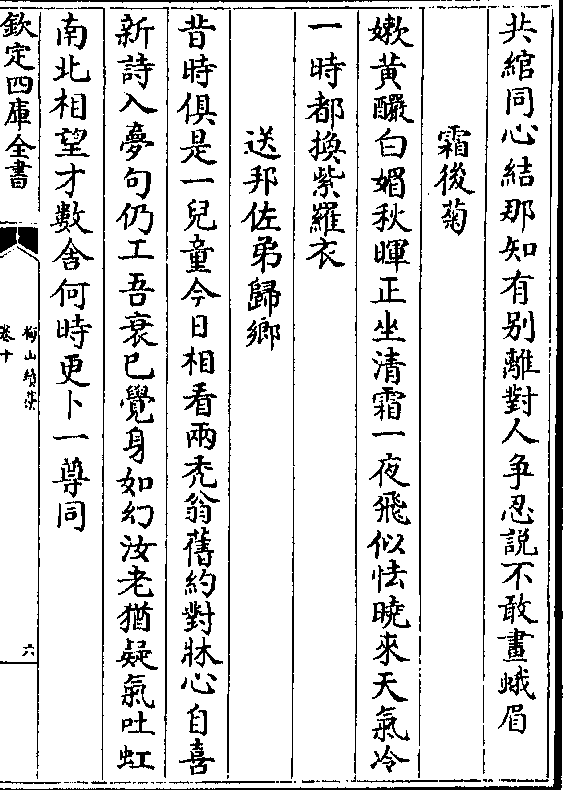 共綰同心結那知有别離對人争忍說不敢畫蛾眉
霜後菊
嫩黄釅白媚秋暉正坐清霜一夜飛似怯曉來天氣冷
一時都換紫羅衣
送邦佐弟歸鄉
昔時俱是一兒童今日相看兩禿翁舊約對牀心自喜
新詩入夢句仍工吾衰已覺身如幻汝老猶疑氣吐虹
南北相望才數舍何時更卜一尊同
欽定四庫全書
梅山續藁
卷十
六